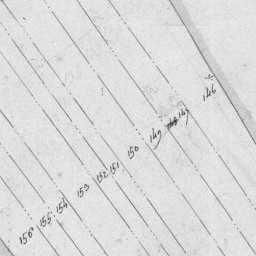 156
155
154
153
152
151
150
149
147
146